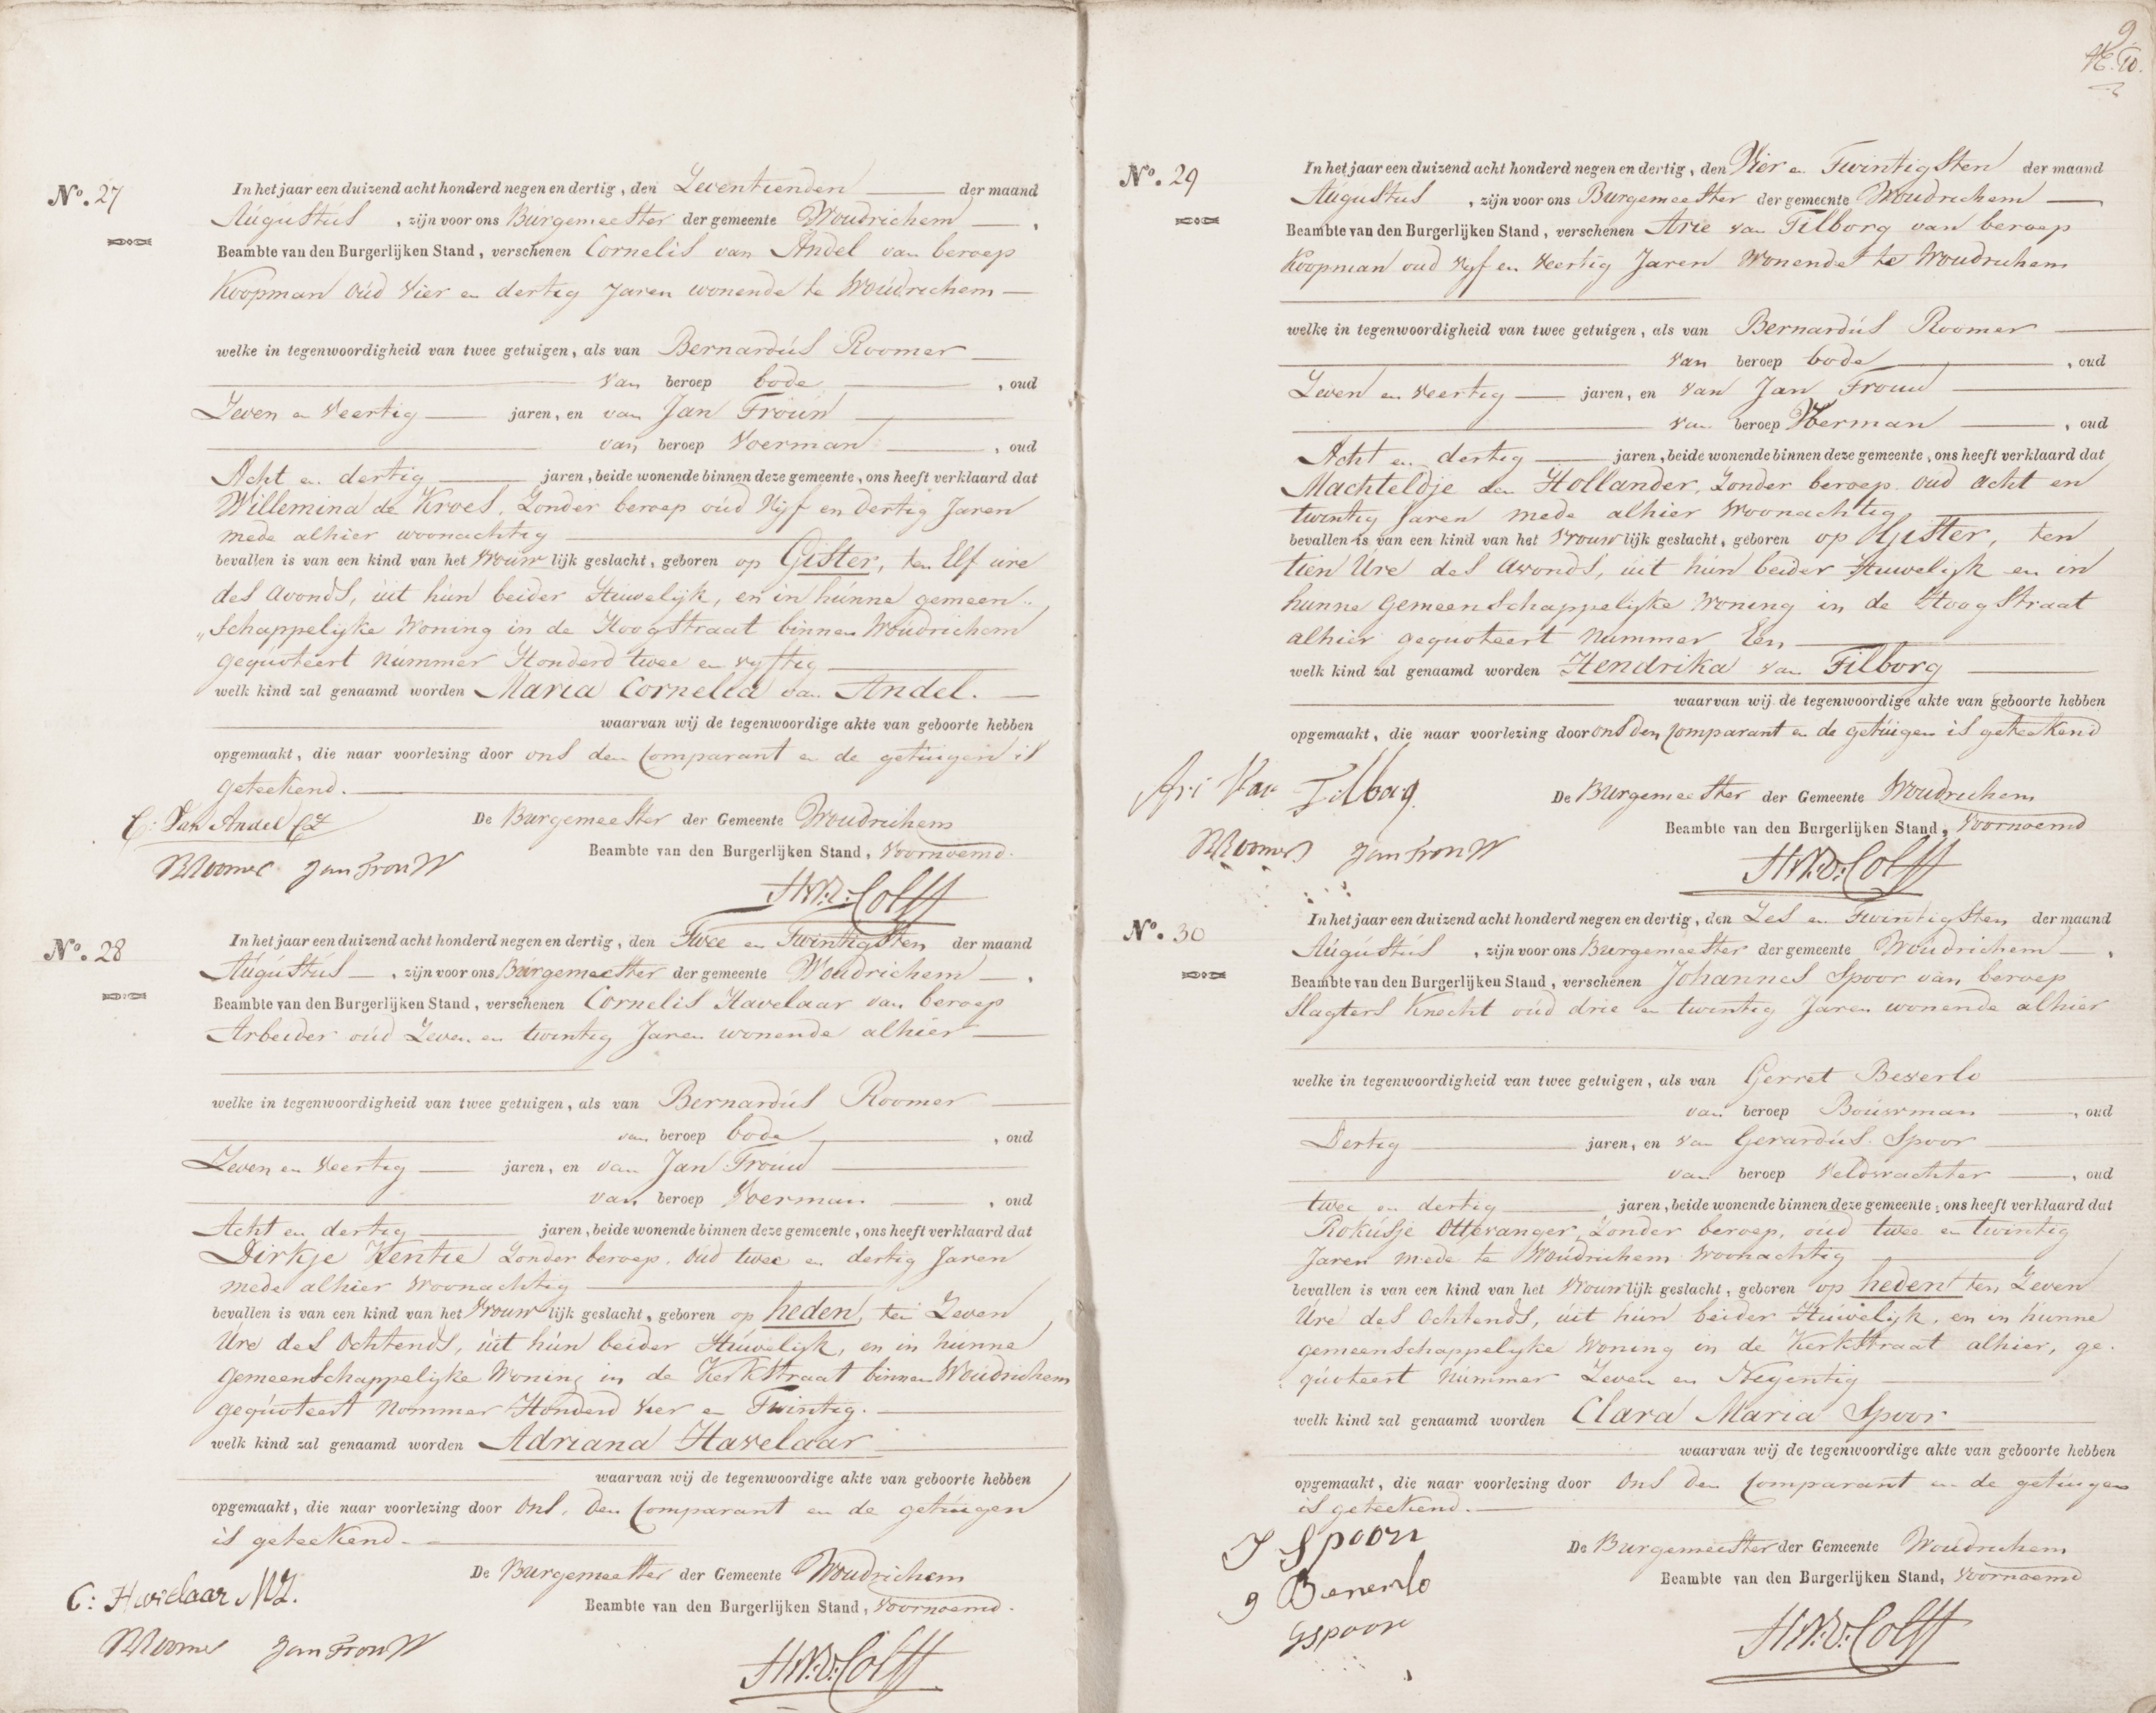 No. 27
In het jaar een duizend acht honderd negen en dertig, den Zeventienden der maand
Augustus, zijn voor ons Burgemeester der gemeente Woudrichem,
Beambte van den Burgerlijken Stand, verschenen Cornelis van Andel van beroep
Koopman oud Vier en dertig Jaren wonende te Woudrichem
welke in tegenwoordigheid van twee getuigen, als van Bernardus Roomer
van beroep bode, oud
Zeven en Veertig jaren, en van Jan Trouw
van beroep Voerman, oud
Acht en dertig jaren, beide wonende binnen deze gemeente, ons heeft verklaard dat
Willemina de Kroes, Zonder beroep oud Vijf en dertig Jaren
mede alhier woonachtig
bevallen is van een kind van het Vrouw lijk geslacht, geboren op Gister, ten Elf ure
des Avonds, uit hun beider Huwelijk, en in hunne gemeen„
„schappelijke Woning in de Hoogstraat binnen Woudrichem
gequoteert Nummer Honderd twee en vyftig
welk kind zal genaamd worden Maria Cornelia van Andel.
waarvan wij de tegenwoordige akte van geboorte hebben
opgemaakt, die naar voorlezing door ons den Comparant en de getuigen is
geteekend.
C: Van Andel CZ
De Burgemeester der Gemeente Woudrichem
Beambte van den Burgerlijken Stand, Voornoemd.
BRoomer Jan Trouw
No. 28
In het jaar een duizend acht honderd negen en dertig, den Twee en Twintigsten der maand
Augustus, zijn voor ons Burgemeester der gemeente Woudrichem,
Beambte van den Burgerlijken Stand, verschenen Cornelis Havelaar van beroep
Arbeider oud Zeven en twintig Jaren wonende alhier
welke in tegenwoordigheid van twee getuigen, als van Bernardus Roomer
van beroep bode, oud
Zeven en Veertig jaren, en van Jan Trouw
van beroep Voerman, oud
Acht en dertig jaren, beide wonende binnen deze gemeente, ons heeft verklaard dat
Dirkje Kentie Zonder beroep. Oud twee en dertig Jaren
mede alhier Woonachtig
bevallen is van een kind van het Vrouw lijk geslacht, geboren op heden, ten Zeven
Ure des Ochtends, uit hun beider Huwelijk, en in hunne
gemeenschappelijke Woning in de Kerkstraat binnen Woudrichem
gequoteert Nommer Honderd Vier en Twintig.
welk kind zal genaamd worden Adriana Havelaar
waarvan wij de tegenwoordige akte van geboorte hebben
opgemaakt, die naar voorlezing door Ons, den Comparant en de getuigen
is geteekend.
De Burgemeester der Gemeente Woudrichem
C: Havelaar NZ.
Beambte van den Burgerlijken Stand, Voornoemd.
BRoomer Jan Trouw
9
No. 29
In het jaar een duizend acht honderd negen en dertig, den Vier en Twintigsten der maand
Augustus, zijn voor ons Burgemeester der gemeente Woudrichem
Beambte van den Burgerlijken Stand, verschenen Arie van Tilborg van beroep
Koopman oud Vyf en Veertig Jaren Wonende te Woudrichem
welke in tegenwoordigheid van twee getuigen, als van Bernardus Roomer
van beroep bode, oud
Zeven en Veertig jaren, en van Jan Trouw
van beroep Voerman, oud
Acht en dertig jaren, beide wonende binnen deze gemeente, ons heeft verklaard dat
Machteldje den Hollander, Zonder beroep oud acht en
twintig Jaren mede alhier Woonachtig
bevallen is van een kind van het Vrouw lijk geslacht, geboren op Gister, ten
tien Ure des Avonds, uit hun beider Huwelijk en in
hunne Gemeenschappelijke Woning in de Hoogstraat
alhier gequoteert Nummer Een
welk kind zal genaamd worden Hendrika van Tilborg
waarvan wij de tegenwoordige akte van geboorte hebben
opgemaakt, die naar voorlezing door ons den Comparant en de getuigen is geteekend
Ari Van Tilbag
De Burgemeester der Gemeente Woudrichem
Beambte van den Burgerlijken Stand, Voornoemd
BRoomer Jan Trouw
No. 30
In het jaar een duizend acht honderd negen en dertig, den Zes en Twintigsten der maand
Augustus, zijn voor ons Burgemeester der gemeente Woudrichem,
Beambte van den Burgerlijken Stand, verschenen Johannes Spoor van beroep
Slagters Knecht oud drie en twintig Jaren wonende alhier
welke in tegenwoordigheid van twee getuigen, als van Gerret Beverlo
van beroep Bouwman, oud
Dertig jaren, en van Gerardus Spoor
van beroep Veldwachter, oud
twee en dertig jaren, beide wonende binnen deze gemeente, ons heeft verklaard dat
Rokusje Ottevanger Zonder beroep, oud twee en twintig
Jaren mede te Woudrichem Woonachtig
bevallen is van een kind van het Vrouw lijk geslacht, geboren op heden ten Zeven
Ure des Ochtends, uit hun beider Huwelijk, en in hunne
gemeenschappelyke Woning in de Kerkstraat alhier, ge.
quoteert Nummer Zeven en Negentig
welk kind zal genaamd worden Clara Maria Spoor
waarvan wij de tegenwoordige akte van geboorte hebben
opgemaakt, die naar voorlezing door Ons den Comparant en de getuigen
is geteekend.
J Spoor
De Burgemeester der Gemeente Woudrichem
g Beverlo
Beambte van den Burgerlijken Stand, Voornoemd
gspoor